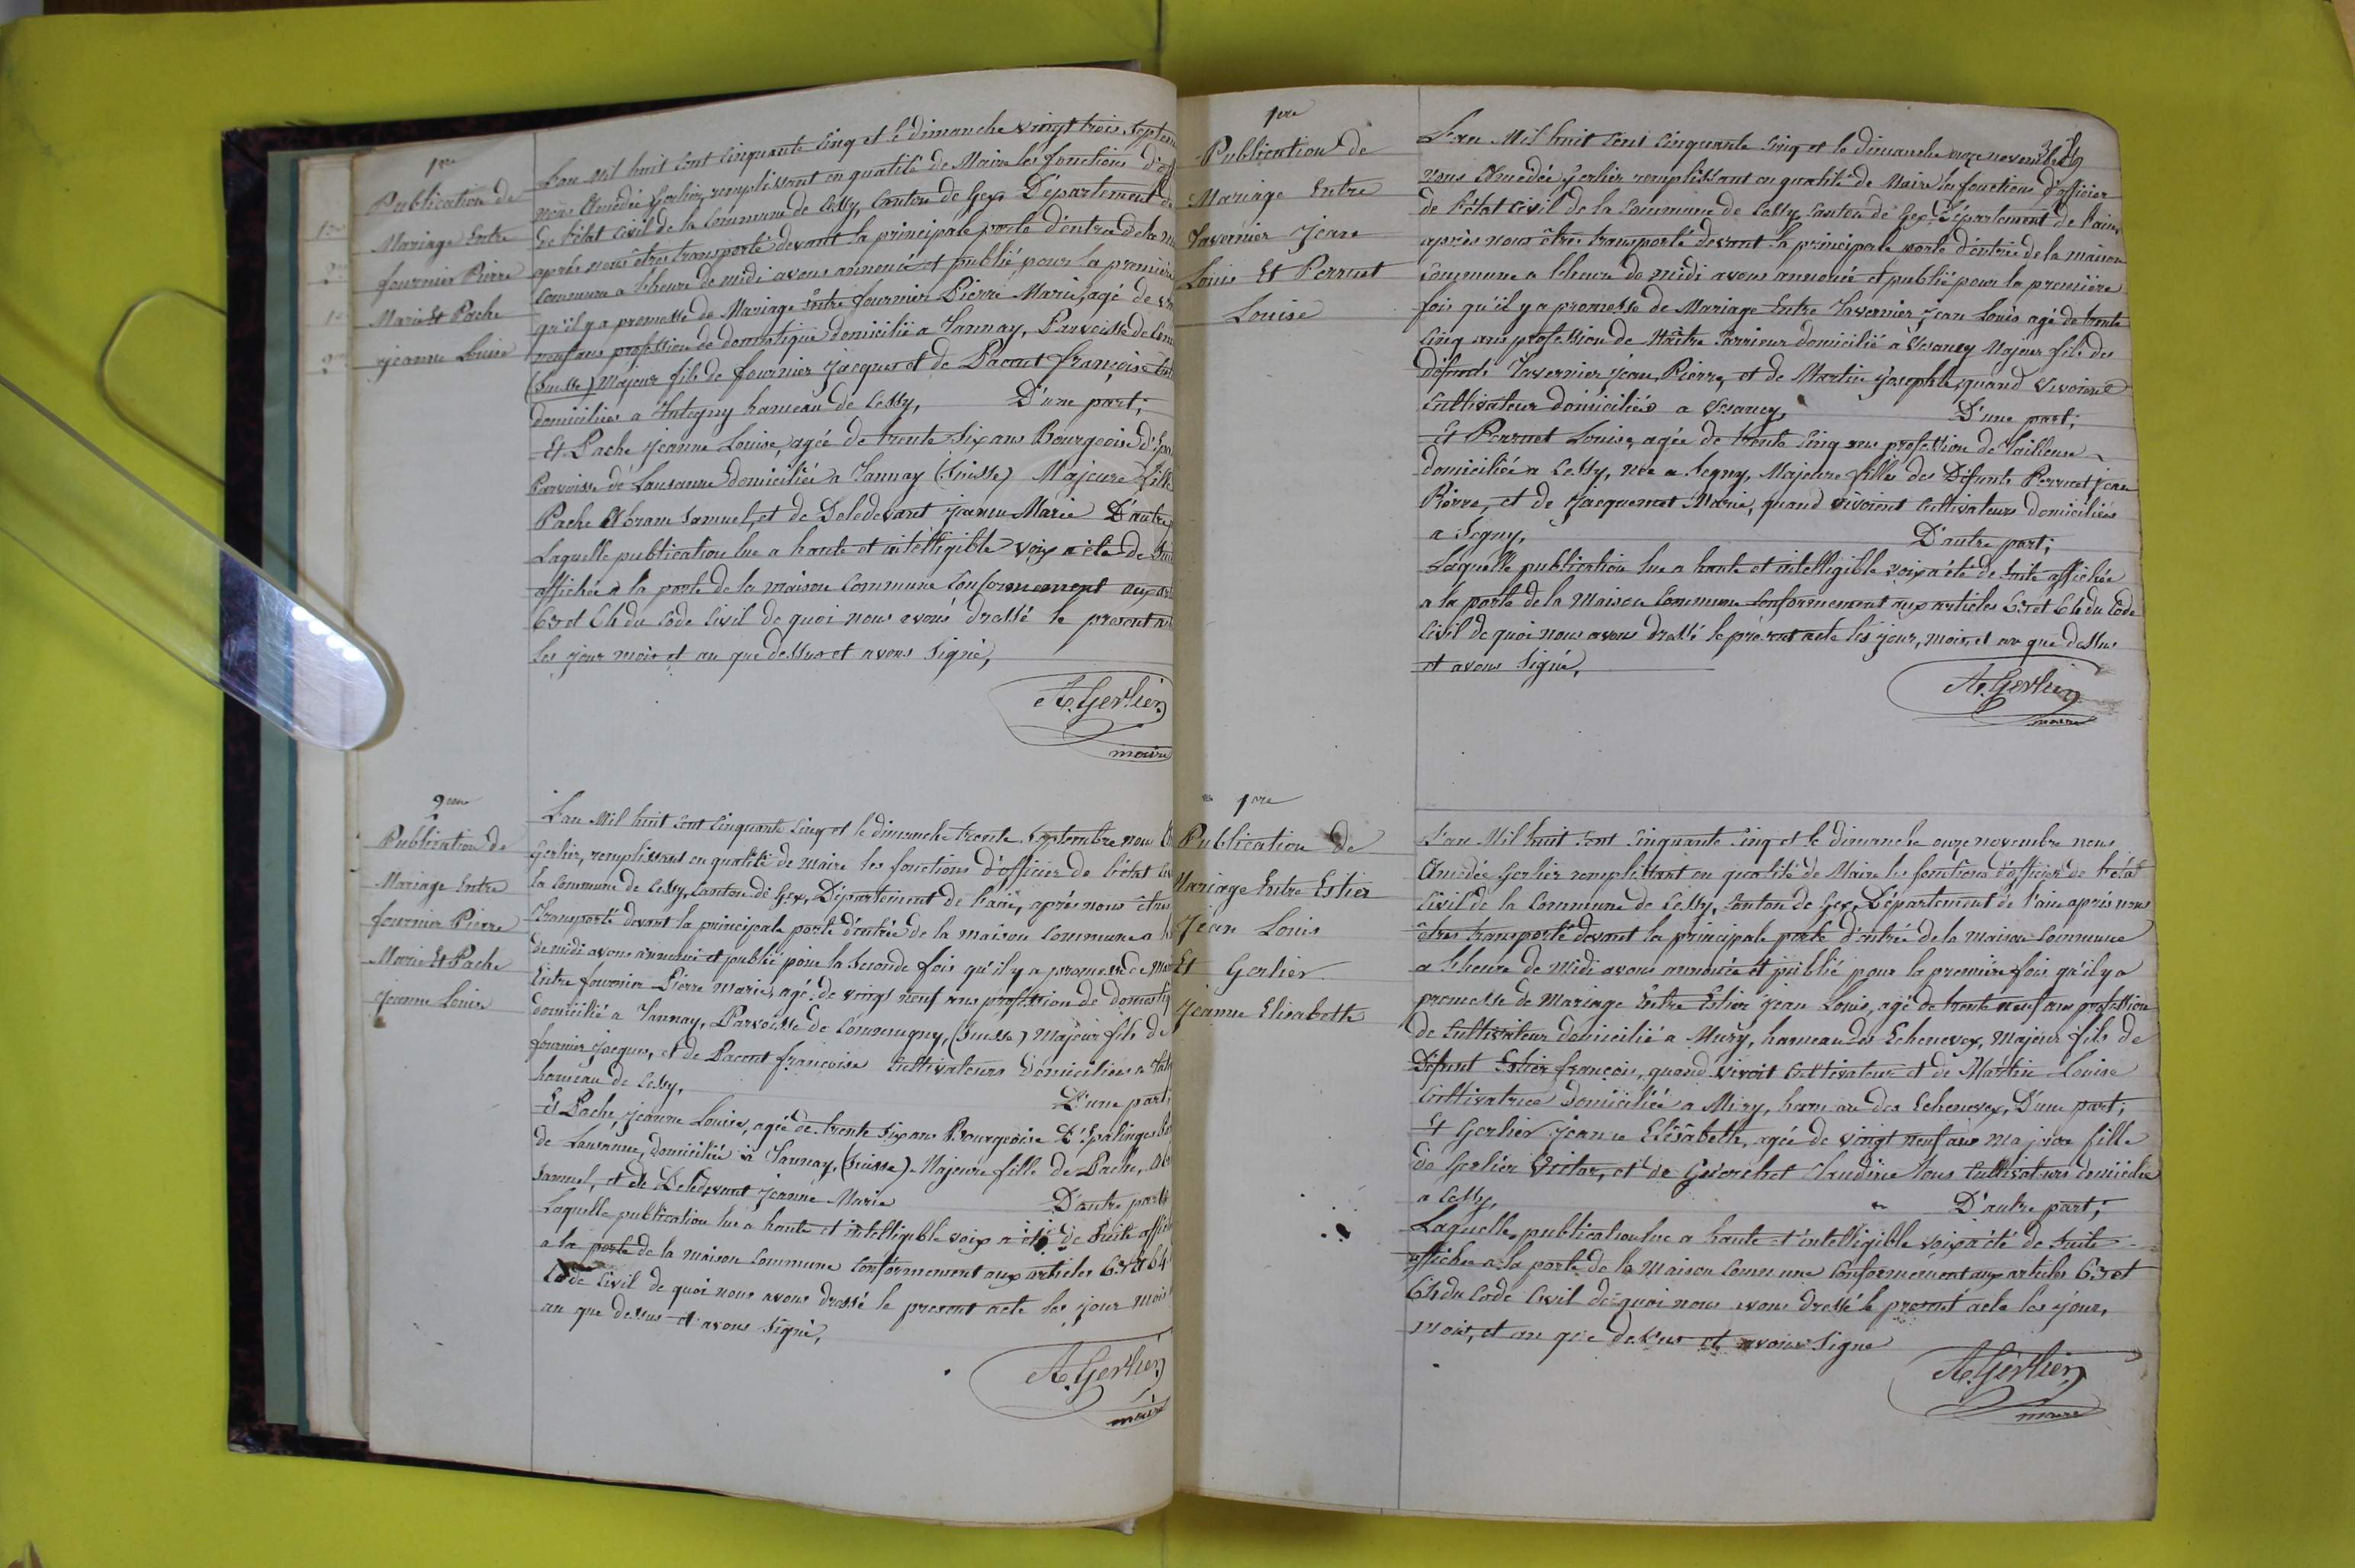 1re
Publication de
Mariage Entre
fournier Pierre
Marie Et Pache
jeanne Louise
L'an Mil huit Cent Cinquante Cinq et le dimanche vingt trois Septem
nous Amédée Gerlier, remplissant en qualité de Maire les fonctions d'of
de l'état Civil de la Commune de Cessy, Canton de Gex Département de
après nous êtres transporté devant la principale porte d'entrée de la m
Commune a l'heure de midi avons annoncé et publié pour la première
qu'il y a promesse de Mariage Entre fournier Pierre Marie, agé de vin
neuf ans profession de domestique domicilié a Tannay, Parroisse de Com
(Suisse) Majeur fils de fournier jacques et de Pacout françoise Cult
domiciliés a Tutegny hameau de Cessy, D'une part;
Et Pache jeanne Louise, agée de trente Six ans Bourgeoise d'Epa
Parroisse de Lausanne domiciliée a Tannay (Suisse) Majeure fille
Pache Abram Samuel, et de Deledevant jeanne Marie D'autre
Laquelle publication lue a haute et intelligible voix a été de Sui
affichée a la porte de la maison Commune Conformement aux art
63 et 64 du Code Civil de quoi nous avons drassé le present a
les jour mois et an que dessus et avons Signé,
A. Gerlier
maire
2eme
Publication de
Mariage Entre
fournier Pierre
Marie Et Pache
jeanne Louise
L'an Mil huit Cent Cinquante Cinq et le dimanche trente Septembre nous
Gerlier, remplissant en qualité de maire les fonctions d'officier de l'état Civ
la Commune de Cessy, Canton de Gex, Département de l'ain, après nous êtres
transporté devant la principale porte d'entrée de la maison Commune a l'h
de midi avons annoncé et publié pour la Seconde fois qu'il y a promesse de Mar
Entre fournier Pierre Marie, agé de vingt neuf ans profession de domestiq
domicilié a Tannay, Parroisse de Commugny, (Suisse) Majeur fils de
fournier jacques, et de Pacout françoise Cultivateurs domiciliées a Tut
hameau de Cessy, D'une part;
Et Pache, jeanne Louise, agée de trente Six ans Bourgeoise D'Epalinges
de Lausanne, domiciliée à Tannay, (Suisse) Majeure fille de Pache, Ab
Samuel, et de Deledevant jeanne Marie D'autre part
Laquelle publication lue a haute et intelligible voix a été de Suite affich
a la porte de la maison Commune Conformement aux articles 63 et 64
Code Civil de quoi nous avons drassé le present acte les jour mois
an que dessus et avons Signé,
A. Gerlier
maire
1re
Publication de
Mariage Entre
Tavernier Jean
Louis Et Perruet
Louise
L'an Mil huit Cent Cinquante Cinq et le dimanche onze novembre
nous Amédée Gerlier remplissant en qualité de Maire les fonctions d'officier
de l'état Civil de la Commune de Cessy Canton de Gex Département de l'ain
après nous êtres transporté devant la principale porte d'entrée de la maison
Commune a l'heure de midi avons annoncé et publié pour la première
fois qu'il y a promesse de Mariage Entre Tavernier Jean Louis agé de trente
Cinq ans profession de Maître Carrieur domicilié à Vesancy Majeur fils des
défunts Tavernier jean, Pierre, et de Martin Josephte, quand vivoient
Cultivateur domiciliés a Vesancy, D'une part;
Et Perruet Louise, agée de trente Cinq ans profession de Tailleuse
domiciliée a Cessy, née a Segny, Majeure fille des Défunts Perruet jean
Pierre, et de Jacquemet Marie, quand vivoient Cultivateurs domiciliés
a Segny, D'autre part;
Laquelle publication lue a haute et intelligible voix a été de Suite affichée
a la porte de la Maison Commune Conformement aux articles 63 et 64 du Code
Civil de quoi nous avons drassé le présent acte les jour, mois, et an que dessus
et avons Signé,
A. Gerlier
maire
1ere
Publication de
Mariage Entre Estier
Jean Louis
Et Gerlier
Jeanne Elisabeth
L'an Mil huit Cent Cinquante Cinq et le dimanche onze novembre nous
Amédée Gerlier remplissant en qualité de Maire les fonctions d'officier de l'état
Civil de la Commune de Cessy, Canton de Gex, Département de l'ain après nous
êtres transporté devant la principale porte d'entrée de la Maison Commune
a l'heure de Midi avons annoncé et publié pour la première fois qu'il y a
promesse de Mariage Entre Estier jean Louis, agé de trente neuf ans profession
de Cultivateur domicilié a Mury, hameau des Echenevex, Majeur fils de
Défunt Estier françois, quand vivoit Cultivateur et de Martin Louise
Cultivatrice domiciliée a Mury, hameau des Echenevex, D'une part;
Et Gerlier jeanne Elisabeth, agée de vingt neuf ans majeure fille
de Gerlier Victor, et de Guerchet Claudine tous Cultivateurs domiciliés
a Cessy, D'autre part;
Laquelle publication lue a haute et intelligible voix a été de Suite
affichée a la porte de la Maison Commune Conformément aux articles 63 et
64 du Code Civil de quoi nous avons drassé le present acte les jour,
mois, et an que dessus et avons Signé
A. Gerlier
maire